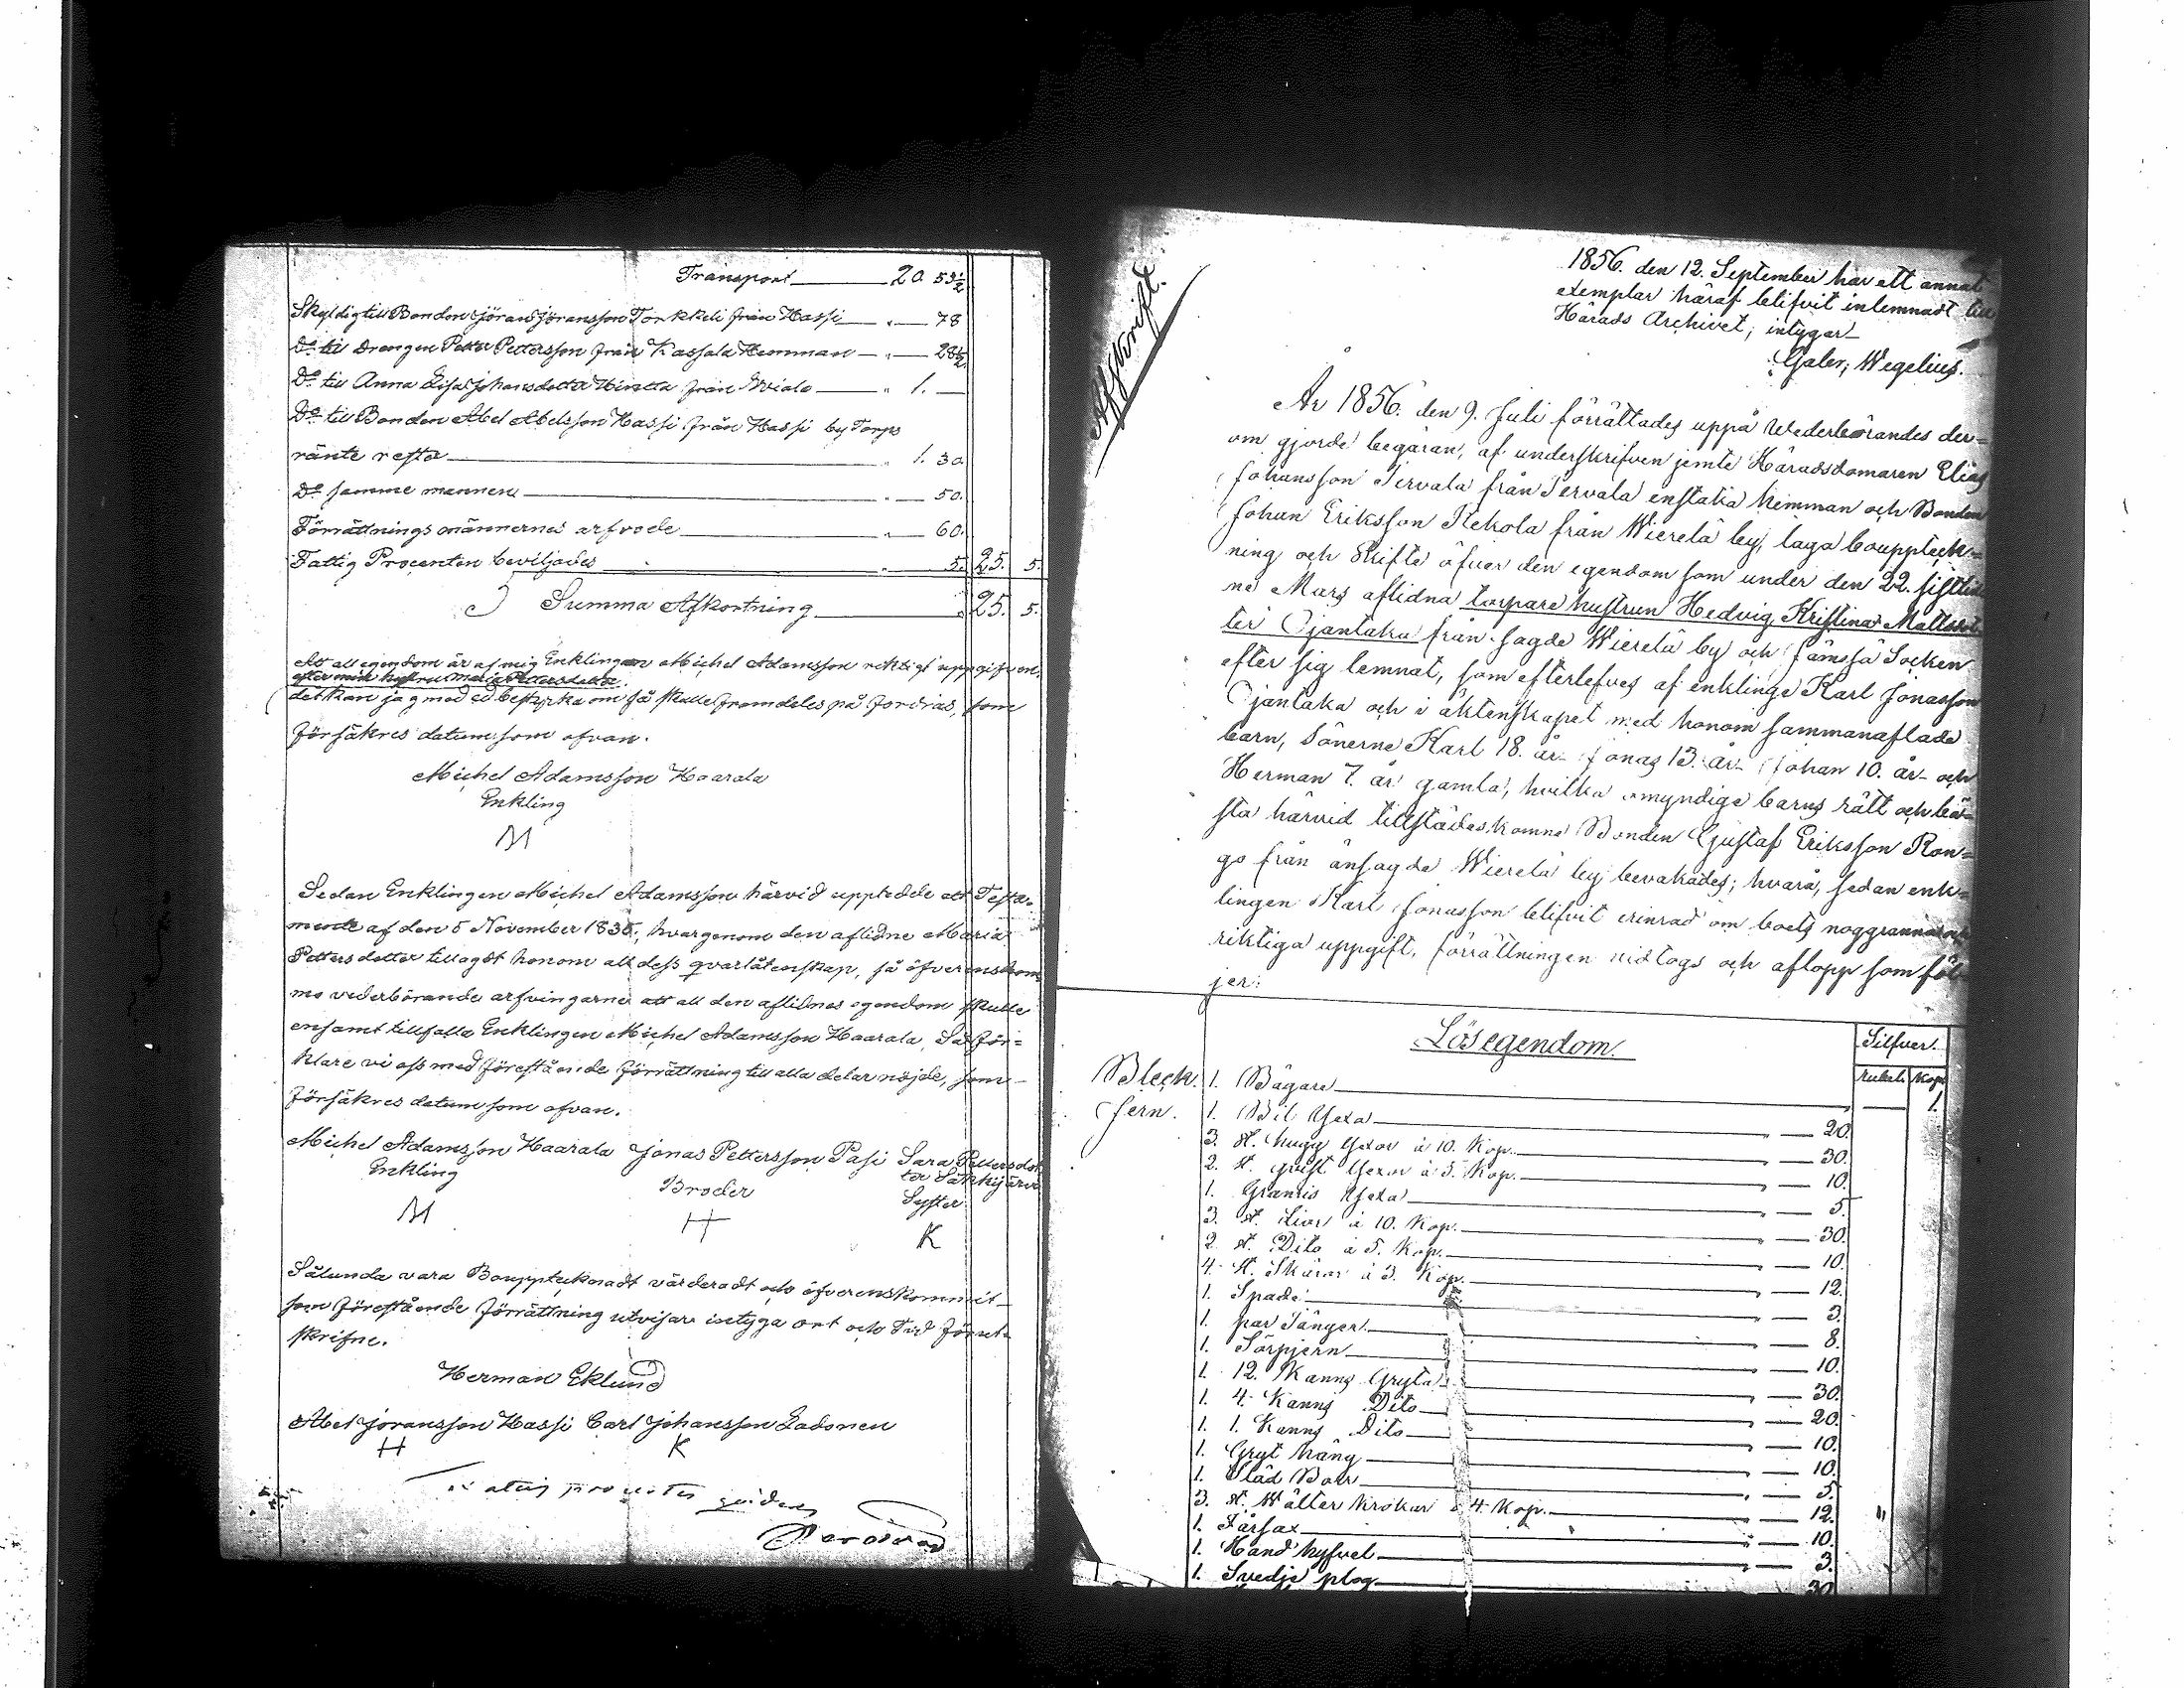 Transport 20. 53½
Skyldig till Bonden Jöran Jöransson Torkkeli från Hassi " — 78
Do till Drengen Petter Pettersson från Kassala Hemman — " — 28½
Do till Anna Lisa Johansdotter från " 1. —
Do till Bonden Abel Abelsson Hassi från Hassi by Torps
ränte resta " 1. 30
Do samme mannen " — 50.
Förrättnings männernes arfvode " — 60.
Fattig Procenten beviljades " 5. 25. 5.
Summa Afkortning 25. 5.
Att all egendom är af mig Enklingen Michel Adamsson riktigt uppgifven
efter min hustru Maria Pettersdotter.
det kan jag med ed bestyrka om så skulle framdeles på fordras, som
försäkres datum som ofvan.
Michel Adamsson Haarala
Enkling
M
Sedan Enklingen Michel Adamsson härvid upptedde ett Testa-
mente af den 5 November 1835, hvargenom den aflidne Maria
Petters dotter tillagdt honom all dess qvarlåtenskap, så öfverenskom
mo vederbörande arfvingarne att all den aflidnes egendom skulle
ensamt tillfalla Enklingen Michel Adamsson Haarala, Så för-
klare vi oss med förestående förrättning till alla delar nöjde, som
försäkres datum som ofvan.
Michel Adamsson Haarala Jonas Pettersson Pasi Sara Pettersdot
Enkling Broder ter Säkkijärvi
Syster
M H K
Sålunda vara Bouppteknadt värderadt och öfverenskommit
som förestående förrättning utvisar intyga ort och Tid förut-
skrifne.
Herman Eklund
Abel Jöransson Hassi Carl Johansson Ladonen
H K
Fattig procenter
Afskrift.
1856. den 12. September har ett annat
exemplar häraf blifvit inlemnadt till
Härads Archivet; intygar
Galer; Wegelius.
År 1856. den 9. Juli förrättades uppå Wederbörandes der-
om gjorde begäran, af underskrifven jemte Häradsdomaren Elias
Johansson Tervala från Tervala enstaka hemman och Bonden
Johan Eriksson Kekola från Wierelä by, laga bouppteck-
ning och Skifte öfver den egendom som under den 22. sistlid
ne Mars aflidna torpare hustrun Hedvig Kristina Mattsdot
ter Ojantaka från sagde Wierelä by och Jämsä Socken
efter sig lemnat, som efterlefves af enklinge Karl Jonasson
Ojantaka och i äktenskapet med honom sammanaflade
barn, Sönerne Karl 18. år Jonas 13. år Johan 10. år och
Herman 7. år gamla, hvilka omyndige barns rätt och bä-
sta härvid tillstädes komne Bonden Gustaf Eriksson Ron-
go från ånsagde Wierelä by bevakades; hvarå, sedan enk-
lingen Karl Jonasson blifvit erinrad om boets noggranna och
riktiga uppgift, förrättningen vidtogs och aflopp som föl-
jer:
Lösegendom. Silfver.
Rubel. Kop.
Bleck. 1. Bägare — 1.
Jern. 1. Bil Yxa " — 20.
3. st. hugg Yxor à 10. Kop. " — 30.
2. st. Yxor à 5. Kop. " — 10.
1. Yxa " — 5.
3. st. Liar à 10. Kop. " — 30.
2. st. Dito à 5. Kop. " — 10.
4. st. Skäror à 3. Kop. " — 12.
1. Spade " — 3.
1. par Tänger " — 8.
1. " — 10.
1. 12. Kanns Gryta " — 30.
1. 4. Kanns Dito " — 20.
1. 1. Kanns Dito " — 10.
1. Gryt häng " — 10.
1. Städ " — 5.
3. st. Krokar à 4 Kop. " — 12.
1. Fårsax " — 10.
1. Hand hyfvel " — 3.
1. Svedje plog 30